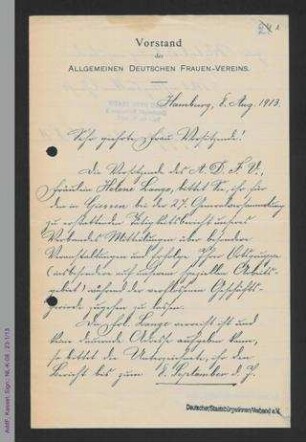 Vorstand
des
ALLGEMEINEN DEUTSCHEN FRAUEN-VEREINS.
Hamburg, 8. Aug. 1913.
Sehr geehrte Frau Vorsitzende!
Die Vorsitzende des A. D. F. V.,
Fräulein Helene Lange, bittet Sie, ihr für
den in Gassen bei der 27. Generalversammlung
zu erstattenden Tätigkeitsbericht unseres
Verbandes Mitteilungen über besondere
Veranstaltungen und Erfolge Ihres
(insbesondere auf unserem speziellen Arbeits-
gebiet) während der verflossenen Geschäfts-
periode zugehen zu lassen.
Frl. Lange verreist ist und
ihre Adresse aufgeben kann,
so bittet die Unterzeichnete, ihr den
Bericht bis zum 8. September d. J.
Deutscher Staatsbürgerinnen-Verband e.V.
AddF, Kassel, Sign.: NL-K-08 ; 23-1/13